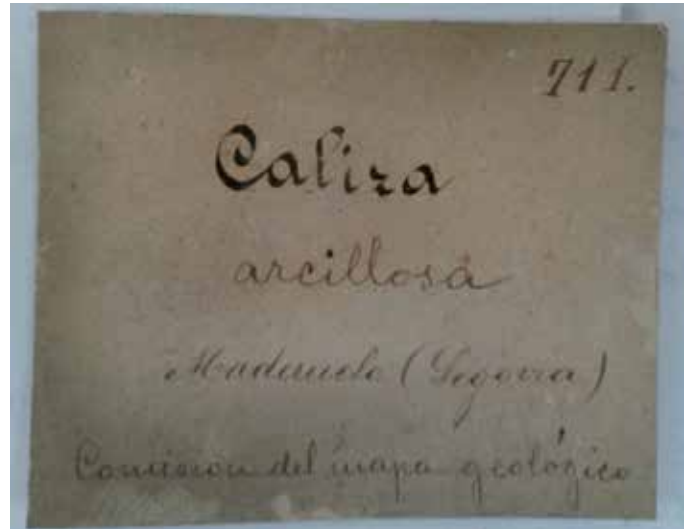 711.
Caliza
arcillosa
Maderuelo (Segovia)
Comision del mapa geológico